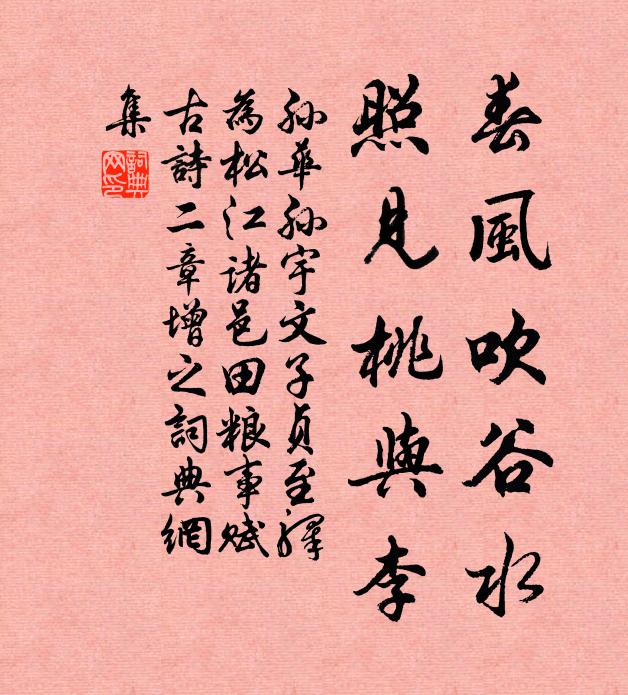 春風吹谷水
照見桃與李
孫華孫宇文子貞至釋
為松江諸邑田粮事賦
古詩二章增之詞典網
集
詞典網印